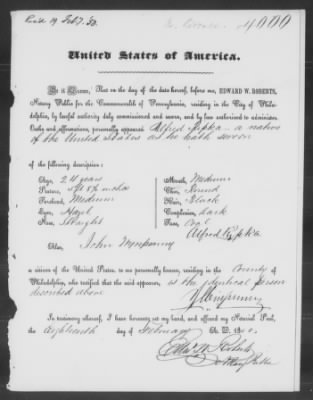 4000
United States of America.
Be it Known, That on the day of the date hereof, before me, EDWARD W. ROBERTS,
Notary Public for the Commonwealth of Pennsylvania, residing in the City of Philadelphia,
by lawful authority duly commissioned and sworn, and by law authorized to administer
Oaths and affirmations, personally appeared Alfred a native
of the United States who hath sworn
of the following description:
Age, 24 years
Mouth, Medium
Stature, 5 ft 8½ inches
Chin, Round
Forehead, Medium
Hair, Black
Eyes, Hazel
Complexion, Dark
Nose, Straight
Face, Oval
Alfred
Also, John
a citizen of the United States, to me personally known, residing in the County of
Philadelphia, who testified that the said appearer, is the identical person
described above
In testimony whereof, I have hereunto set my hand and affixed my Notarial Seal,
the day of February A. D. 18
Edw W Roberts
Notary Public